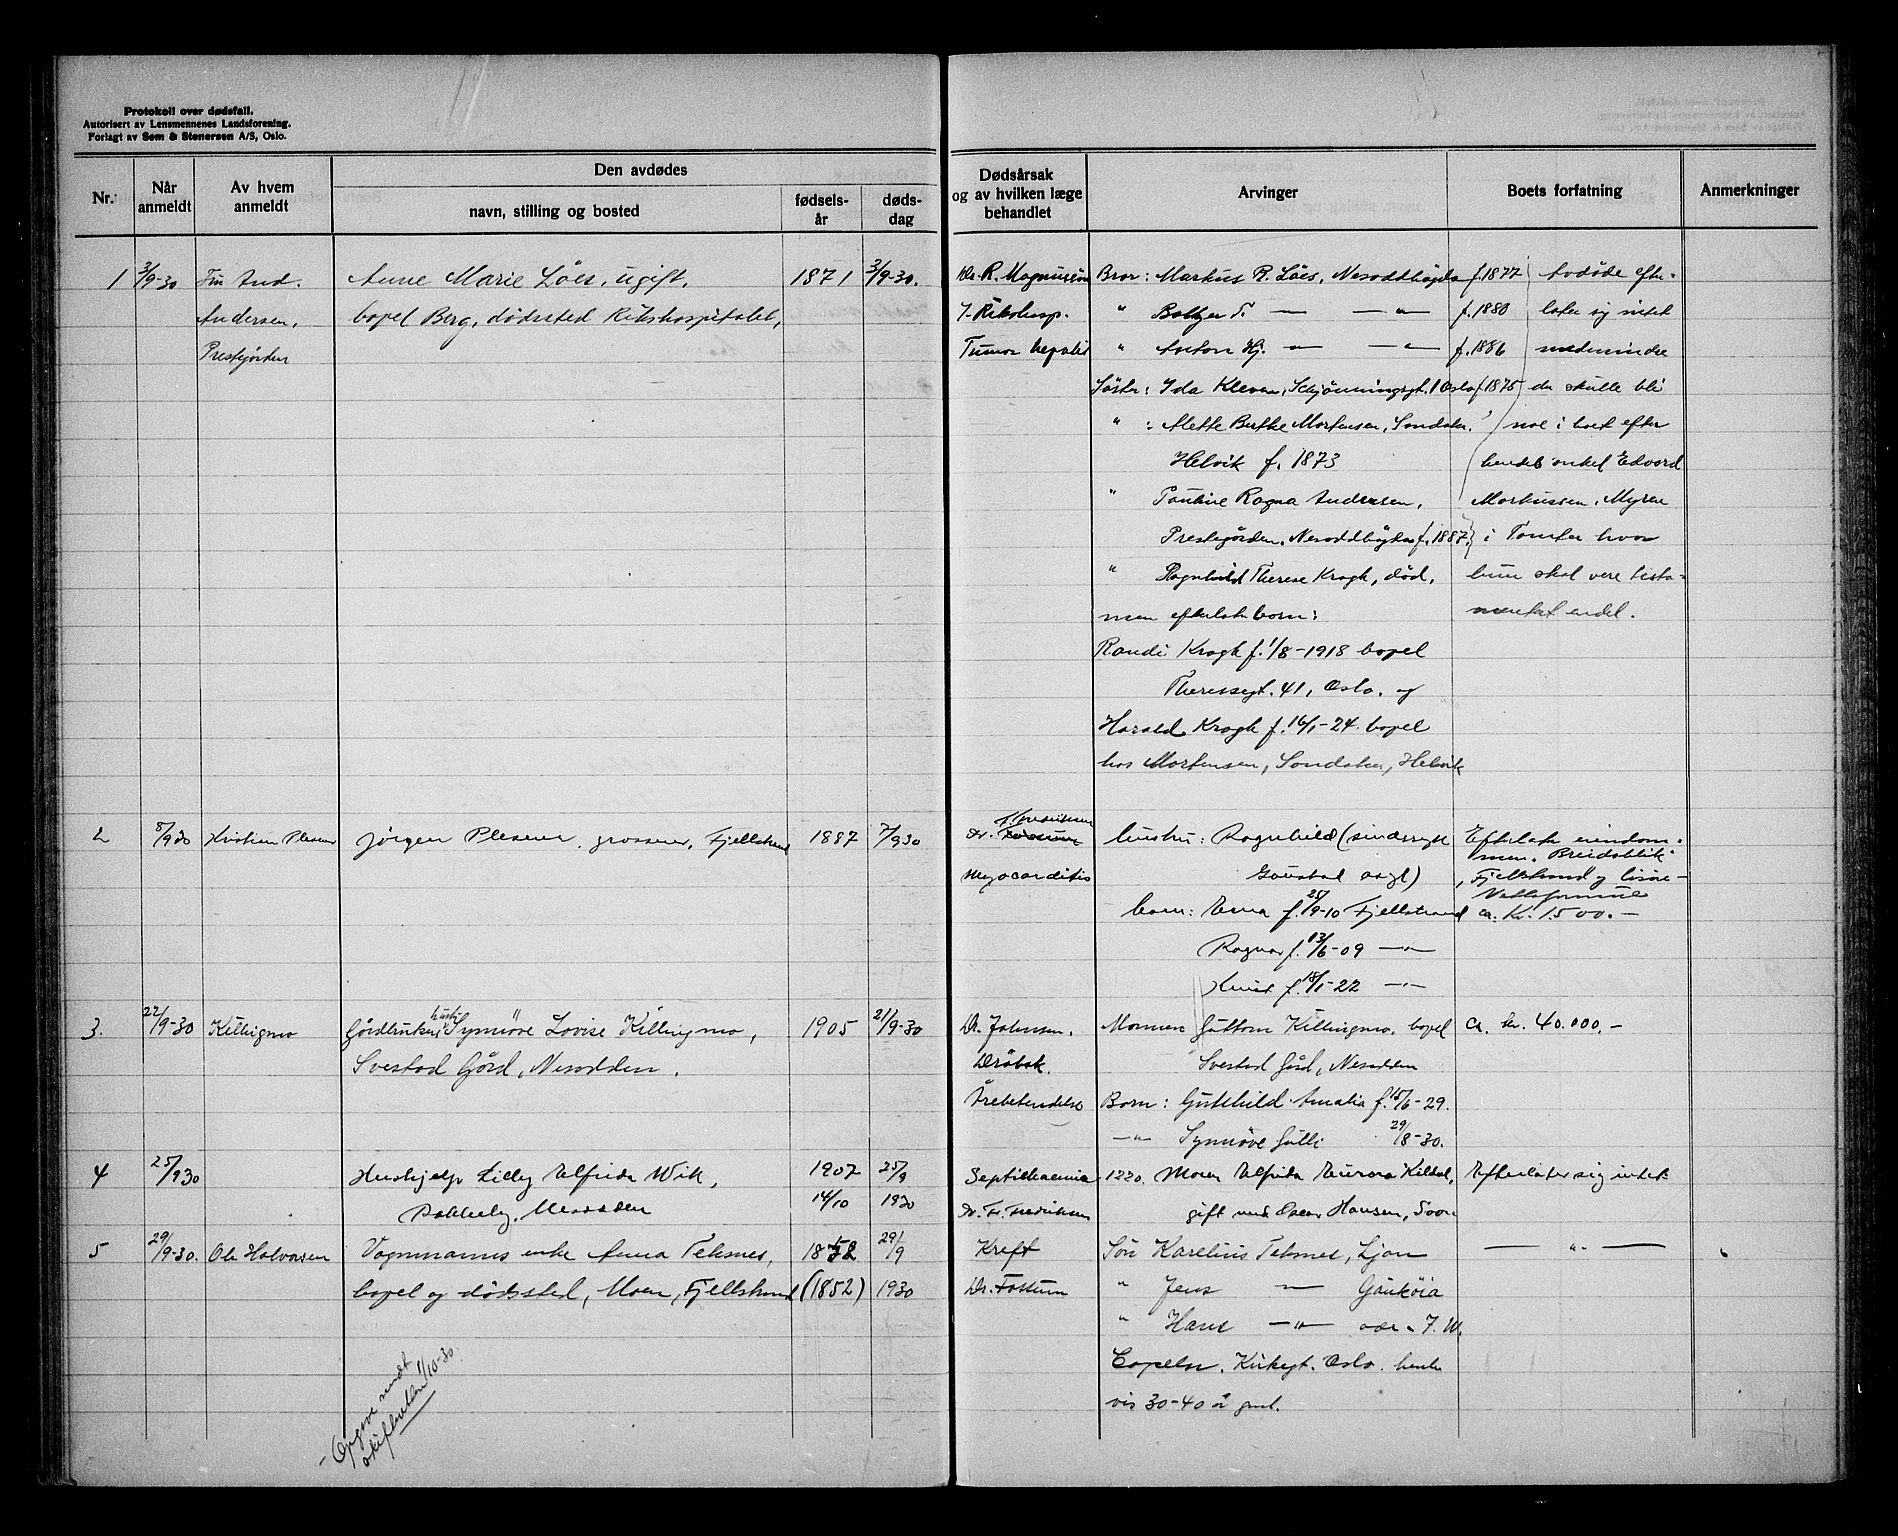 Protokoll over dødsfall.
Autorisert av Lensmennenes Landsforening.
Forlagt av Sem & Stenersen A/S, Oslo.
Nr.
Når anmeldt
Av hvem anmeldt
Den avdødes
navn, stilling og bosted
fødselsår
dødsdag
Dødsårsak og av hvilken læge behandlet
Arvinger
Boets forfatning
Anmerkninger
1 3/9-30 And. Anne Marie Löes, ugift, 1871 3/9-30.
Andersen, bopel Berg, dødssted Rikshospitalet,
Prestegården
Dr. R. Magnusson
Rikshosp.
Tumor hepatis
Bror: Markus R. Löes, Nesoddbögda f. 1877
" T. — — " — f. 1880
" Anton Hj. — " — — " — f. 1886
Söster: Ida Kleven, Schjönningsgt. 1 Oslo f. 1875
" : Mette Berthe Mortensen, Sondaker,
Helvik f. 1873
" Pauline Ragna Andersen,
Prestegården, Nesoddbögda f. 1887
" Ragnhild Therese Krogh, død,
men efterlatt born:
Randi Krogh f. 1/8-1918 bopel
Theresesgt. 41, Oslo. og
Harald Krogh f. 16/1-24 bopel
hos Mortensen, Sondaker, Helvik
Avdøde efter-
later sig intet
medmindre
der skulle bli
noe i boet efter
hendes onkel Edvard
Markussen, Myrer
i Tomter hvor
hun skal være testa-
mentert endel.
2 8/9 30 Kristian Plesner Jörgen Plesner, grosserer, Fjellstrand 1887 7/9 30
Dr. Fredriksen
Myocarditis
hustru: Ragnhild (sindssyk
Gaustad asyl)
born: Erna f. 25/9-10 Fjellstrand
Ragnar f. 13/6-09 — " —
Knut f. 18/1-22 — " —
Efterlatt eiendom-
men. Breidablik
Fjellstrand og lisöre-
Nettoformue
ca. Kr. 1500.-
3. 22/9-30 Killingmo Gårdbruker hustr. Synnöve Lovise Killingmo, 1905 21/9-30
Svestad Gård, Nesodden.
Dr. Johnsen,
Dröbak.
Årebetendelse
Mannen Guttorm Killingmo, bopel
Svestad Gård, Nesodden
Born: Gutthild Amalia f. 15/6-29.
— " — Synnöve Gutti 29/8-30.
Ca. kr. 40.000.-
4 25/9 30 Hushjelp Lilly Alfrida Wik, 1907 25/9
Bakkeby, Nesodden 14/10 1930
Septikhaemia
Dr. Fr. Fredriksen
1220. Moren Alfrida Aurora Kildal,
gift med Oscar Hansen, Soon
Efterlater sig intet
5 29/9-30. Ole Halvorsen Vognmanns enke Anna Teksnes, 1852 29/9
bopel og dødssted, Moen, Fjellstrand (1852) 1930
Kreft
Dr. Fossum
Sön Karelius Teksnes, Ljan
" Jens — Gauköia
" Hans — " — J. W.
Capelen, Kirkegt. Oslo. henh.
vis 30-40 år gml.
— " —
- Opgave sendt
skifteretten 1/10-30.